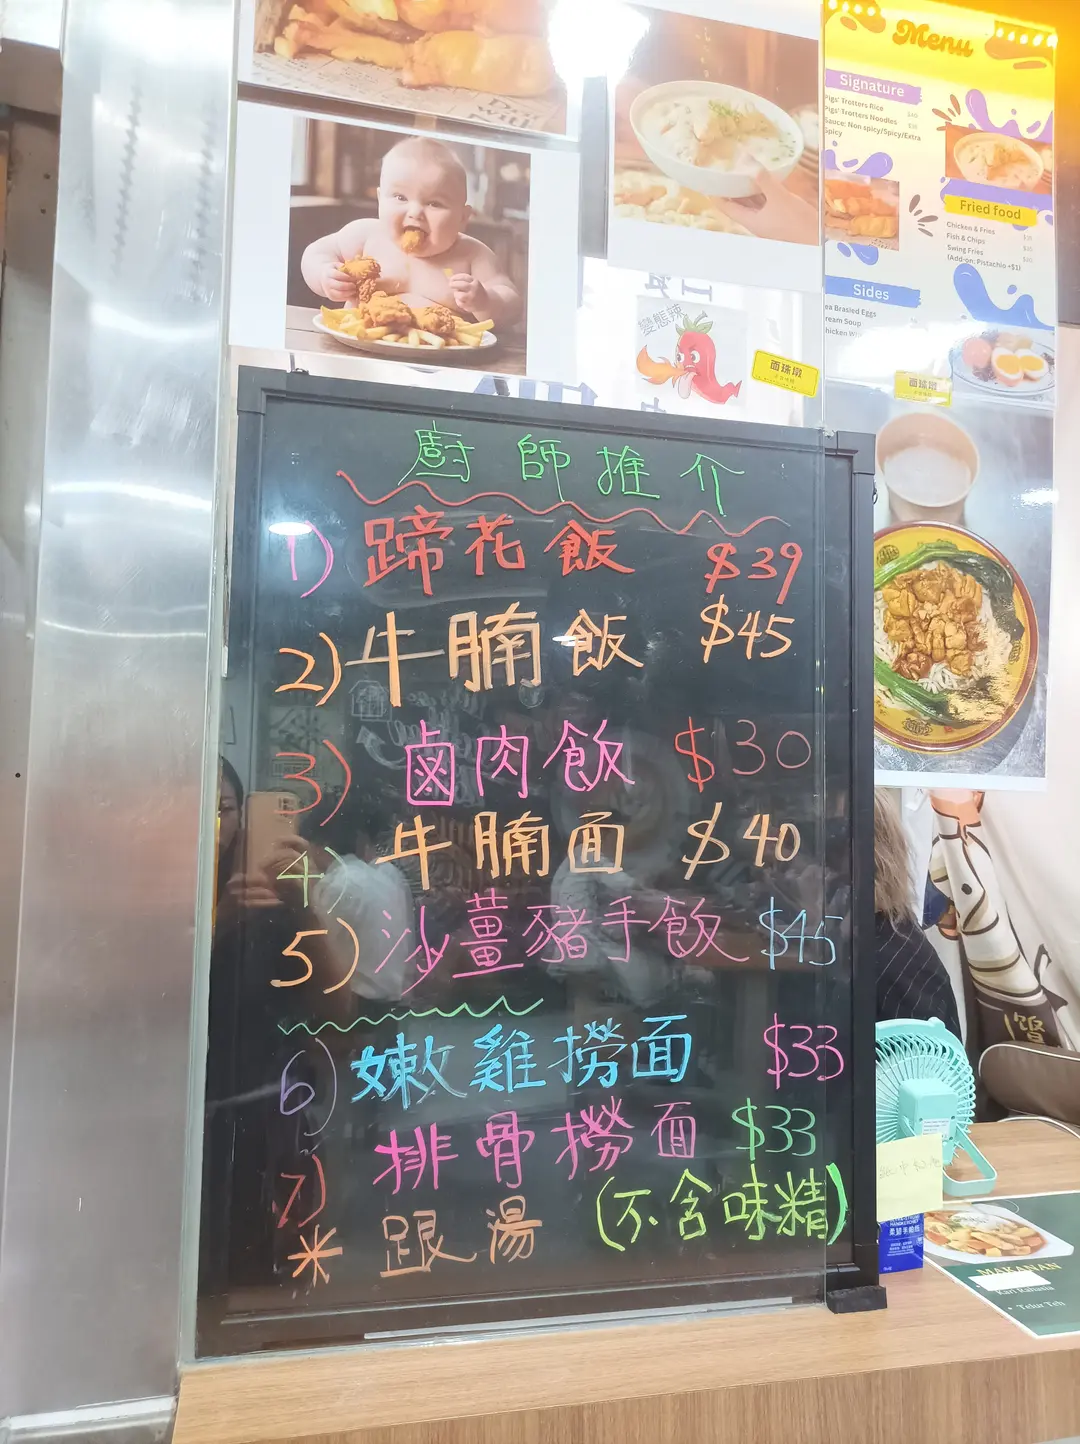 Menu
Signature
Pigs' Trotters Rice
Pigs' Trotters Noodles
Sauce: Non spicy/Spicy/Extra
Spicy
Fried food
Chicken & Fries
Fish & Chips
Swing Fries
(Add-on: Pistachio +$1)
Sides
ea Brasied Eggs
ream Soup
變態辣
面珠墩
廚師推介
1) 蹄花飯 $39
2) 牛腩飯 $45
3) 鹵肉飯 $30
4) 牛腩面 $40
5) 沙薑豬手飯 $45
6) 嫩雞撈面 $33
7) 排骨撈面 $33
米 跟湯 (不含味精)
MAKANAN
Kari Rahasia
• Telur Teh